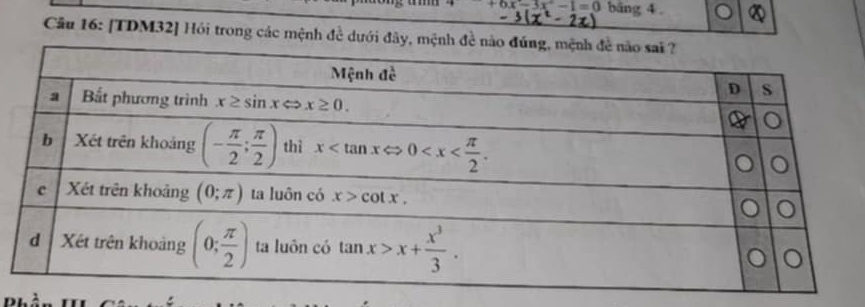 + 6x - 3x - 1 = 0 bằng 4.
- 3(x² - 2x)
Câu 16: [TDM32] Hỏi trong các mệnh đề dưới đây, mệnh đề nào đúng, mệnh đề nào sai ?
Mệnh đề Đ S
a Bất phương trình x ≥ sin x ⇔ x ≥ 0.
b Xét trên khoảng (-π/2; π/2) thì x < tan x ⇔ 0 < x < π/2.
c Xét trên khoảng (0; π) ta luôn có x > cot x.
d Xét trên khoảng (0; π/2) ta luôn có tan x > x + x³/3.
Phần III